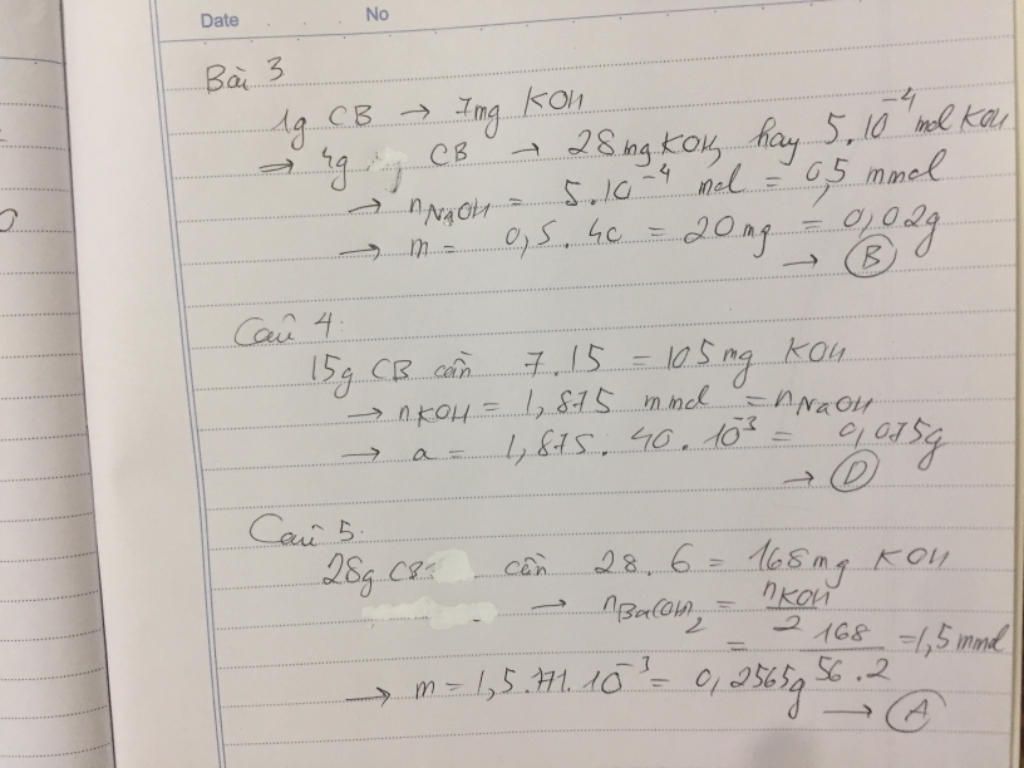 Date No
Bài 3
1g CB → 7mg KOH
⇒ 4g CB → 28mg KOH, hay 5.10⁻⁴ mol KOH
→ nNaOH = 5.10⁻⁴ mol = 0,5 mmol
→ m = 0,5.40 = 20mg = 0,02g
→ B
Câu 4:
15g CB cần 7.15 = 105mg KOH
→ nKOH = 1,875 mmol = nNaOH
→ a = 1,875.40.10⁻³ = 0,075g
→ D
Câu 5:
28g CB cần 28.6 = 168mg KOH
→ nBa(OH)₂ = nKOH / 2
= 168 / 56.2 = 1,5 mmol
→ m = 1,5.171.10⁻³ = 0,2565g → A